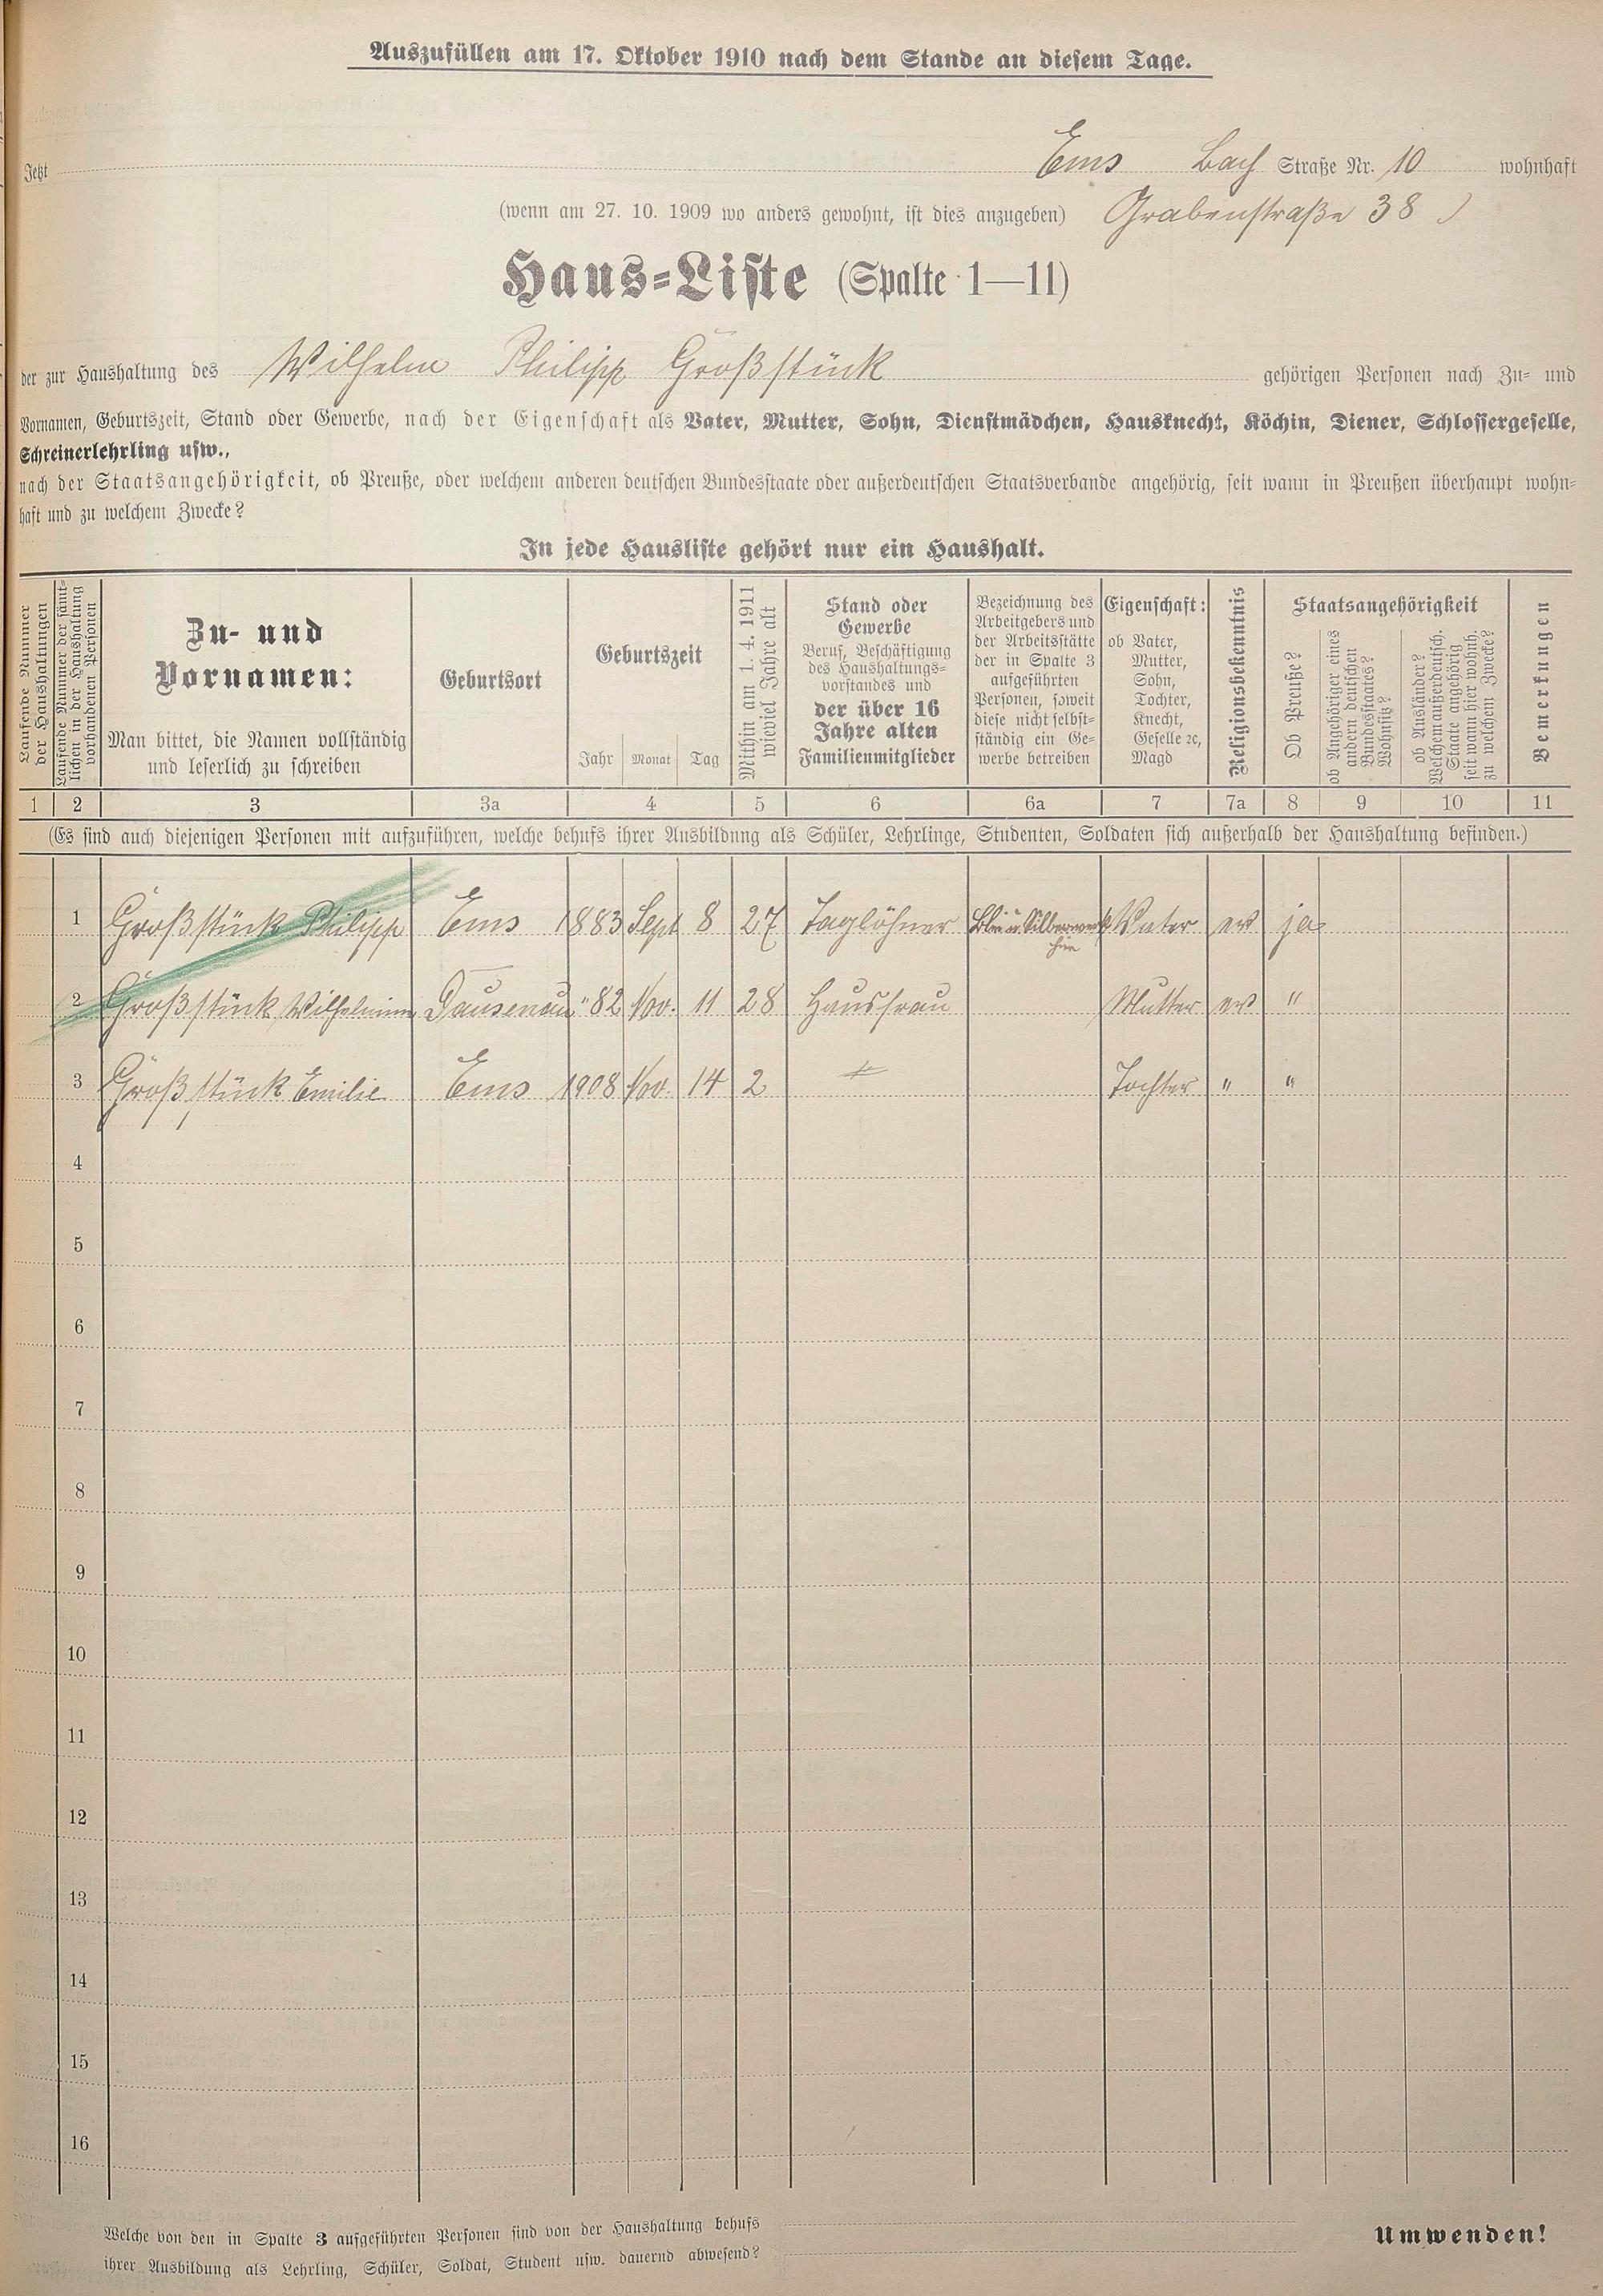 Auszufüllen am 17. Oktober 1910 nach dem Stande an diesem Tage.
Jetzt Ems Bach Straße Nr. 10 wohnhaft
(wenn am 27. 10. 1909 wo anders gewohnt, ist dies anzugeben) Grabenstraße 38 )
Haus-Liste (Spalte 1—11)
der zur Haushaltung des Wilhelm Philipp Großstück gehörigen Personen nach Zu- und
Vornamen, Geburtszeit, Stand oder Gewerbe, nach der Eigenschaft als Vater, Mutter, Sohn, Dienstmädchen, Hausknecht, Köchin, Diener, Schlossergeselle,
Schreinerlehrling usw.,
nach der Staatsangehörigkeit, ob Preuße, oder welchem anderen deutschen Bundesstaate oder außerdeutschen Staatsverbande angehörig, seit wann in Preußen überhaupt wohn-
haft und zu welchem Zwecke?
In jede Hausliste gehört nur ein Haushalt.
Laufende Nummer
der Haushaltungen
Laufende Nummer der sämt-
lichen in der Haushaltung
vorhandenen Personen
Zu- und
Vornamen:
Man bittet, die Namen vollständig
und leserlich zu schreiben
Geburtsort
Geburtszeit
Jahr Monat Tag
Mithin am 1. 4. 1911
wieviel Jahre alt
Stand oder
Gewerbe
Beruf, Beschäftigung
des Haushaltungs-
vorstandes und
der über 16
Jahre alten
Familienmitglieder
Bezeichnung des
Arbeitgebers und
der Arbeitsstätte
der in Spalte 3
aufgeführten
Personen, soweit
diese nicht selbst-
ständig ein Ge-
werbe betreiben
Eigenschaft:
ob Vater,
Mutter,
Sohn,
Tochter,
Knecht,
Geselle ꝛc,
Magd
Religionsbekenntnis
Staatsangehörigkeit
Ob Preuße?
ob Angehöriger eines
andern deutschen
Bundesstaates?
Wohnsitz?
ob Ausländer?
Welchem außerdeutsch.
Staate angehörig
seit wann hier wohnh.
zu welchem Zwecke?
Bemerkungen
1 2 3 3a 4 5 6 6a 7 7a 8 9 10 11
(Es sind auch diejenigen Personen mit aufzuführen, welche behufs ihrer Ausbildung als Schüler, Lehrlinge, Studenten, Soldaten sich außerhalb der Haushaltung befinden.)
1 Großstück Philipp Ems 1883 Sept 8 27 Taglöhner Blei u Silberwerk Vater ev ja
2 Großstück Wilhelmine Dausenau " 82 Nov. 11 28 Hausfrau Mutter ev "
3 Großstück Emilie Ems 1908 Nov. 14 2 Tochter " "
4
5
6
7
8
9
10
11
12
13
14
15
16
Welche von den in Spalte 3 aufgeführten Personen sind von der Haushaltung behufs
ihrer Ausbildung als Lehrling, Schüler, Soldat, Student usw. dauernd abwesend?
Umwenden!